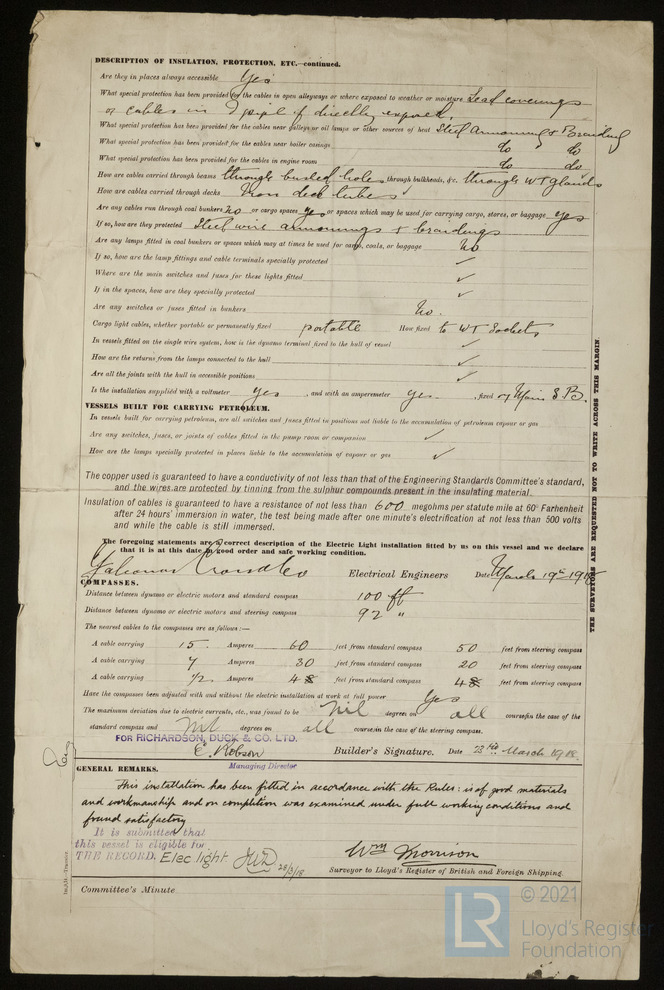 DESCRIPTION OF INSULATION, PROTECTION, ETC.—continued.
Are they in places always accessible Yes
What special protection has been provided for the cables in open alleyways or where exposed to weather or moisture Lead coverings
or cables in pipe if directly exposed.
What special protection has been provided for the cables near galleys or oil lamps or other sources of heat Steel Armouring & Braiding
What special protection has been provided for the cables near boiler casings do do
What special protection has been provided for the cables in engine room do do
How are cables carried through beams through bushed holes through bulkheads, &c. through WT glands
How are cables carried through decks Iron deck tubes
Are any cables run through coal bunkers No or cargo spaces yes or spaces which may be used for carrying cargo, stores, or baggage yes
If so, how are they protected Steel wire armourings & braidings
Are any lamps fitted in coal bunkers or spaces which may at times be used for cargo, coals, or baggage No
If so, how are the lamp fittings and cable terminals specially protected ✓
Where are the main switches and fuses for these lights fitted ✓
If in the spaces, how are they specially protected ✓
Are any switches or fuses fitted in bunkers No.
Cargo light cables, whether portable or permanently fixed portable How fixed to WT Sockets
In vessels fitted on the single wire system, how is the dynamo terminal fixed to the hull of vessel ✓
How are the returns from the lamps connected to the hull ✓
Are all the joints with the hull in accessible positions ✓
Is the installation supplied with a voltmeter yes , and with an amperemeter yes , fixed on Main S B.
VESSELS BUILT FOR CARRYING PETROLEUM.
In vessels built for carrying petroleum, are all switches and fuses fitted in positions not liable to the accumulation of petroleum vapour or gas
Are any switches, fuses, or joints of cables fitted in the pump room or companion ✓
How are the lamps specially protected in places liable to the accumulation of vapour or gas ✓
The copper used is guaranteed to have a conductivity of not less than that of the Engineering Standards Committee's standard,
and the wires are protected by tinning from the sulphur compounds present in the insulating material.
Insulation of cables is guaranteed to have a resistance of not less than 600 megohms per statute mile at 60° Farhenheit
after 24 hours' immersion in water, the test being made after one minute's electrification at not less than 500 volts
and while the cable is still immersed.
The foregoing statements are a correct description of the Electric Light installation fitted by us on this vessel and we declare
that it is at this date in good order and safe working condition.
Electrical Engineers Date March 19th 1918
COMPASSES.
Distance between dynamo or electric motors and standard compass 100 ft
Distance between dynamo or electric motors and steering compass 92 "
The nearest cables to the compasses are as follows:—
A cable carrying 15 Amperes 60 feet from standard compass 50 feet from steering compass
A cable carrying 7 Amperes 30 feet from standard compass 20 feet from steering compass
A cable carrying 1/2 Amperes feet from standard compass feet from steering compass
Have the compasses been adjusted with and without the electric installation at work at full power Yes
The maximum deviation due to electric currents, etc., was found to be Nil degrees on all course in the case of the
standard compass and Nil degrees on all course in the case of the steering compass.
FOR RICHARDSON, DUCK & CO. LTD.
E. Robson Builder's Signature. Date 23rd March 1918.
Managing Director
GENERAL REMARKS.
This installation has been fitted in accordance with the Rules: is of good materials
and workmanship and on completion was examined under full working conditions and
found satisfactory
It is submitted that
this vessel is eligible for
THE RECORD. Elec light JWD 28/3/18
Wm Morrison
Surveyor to Lloyd's Register of British and Foreign Shipping.
Committee's Minute
THE SURVEYORS ARE REQUESTED NOT TO WRITE ACROSS THIS MARGIN.
LR © 2021
Lloyd's Register
Foundation